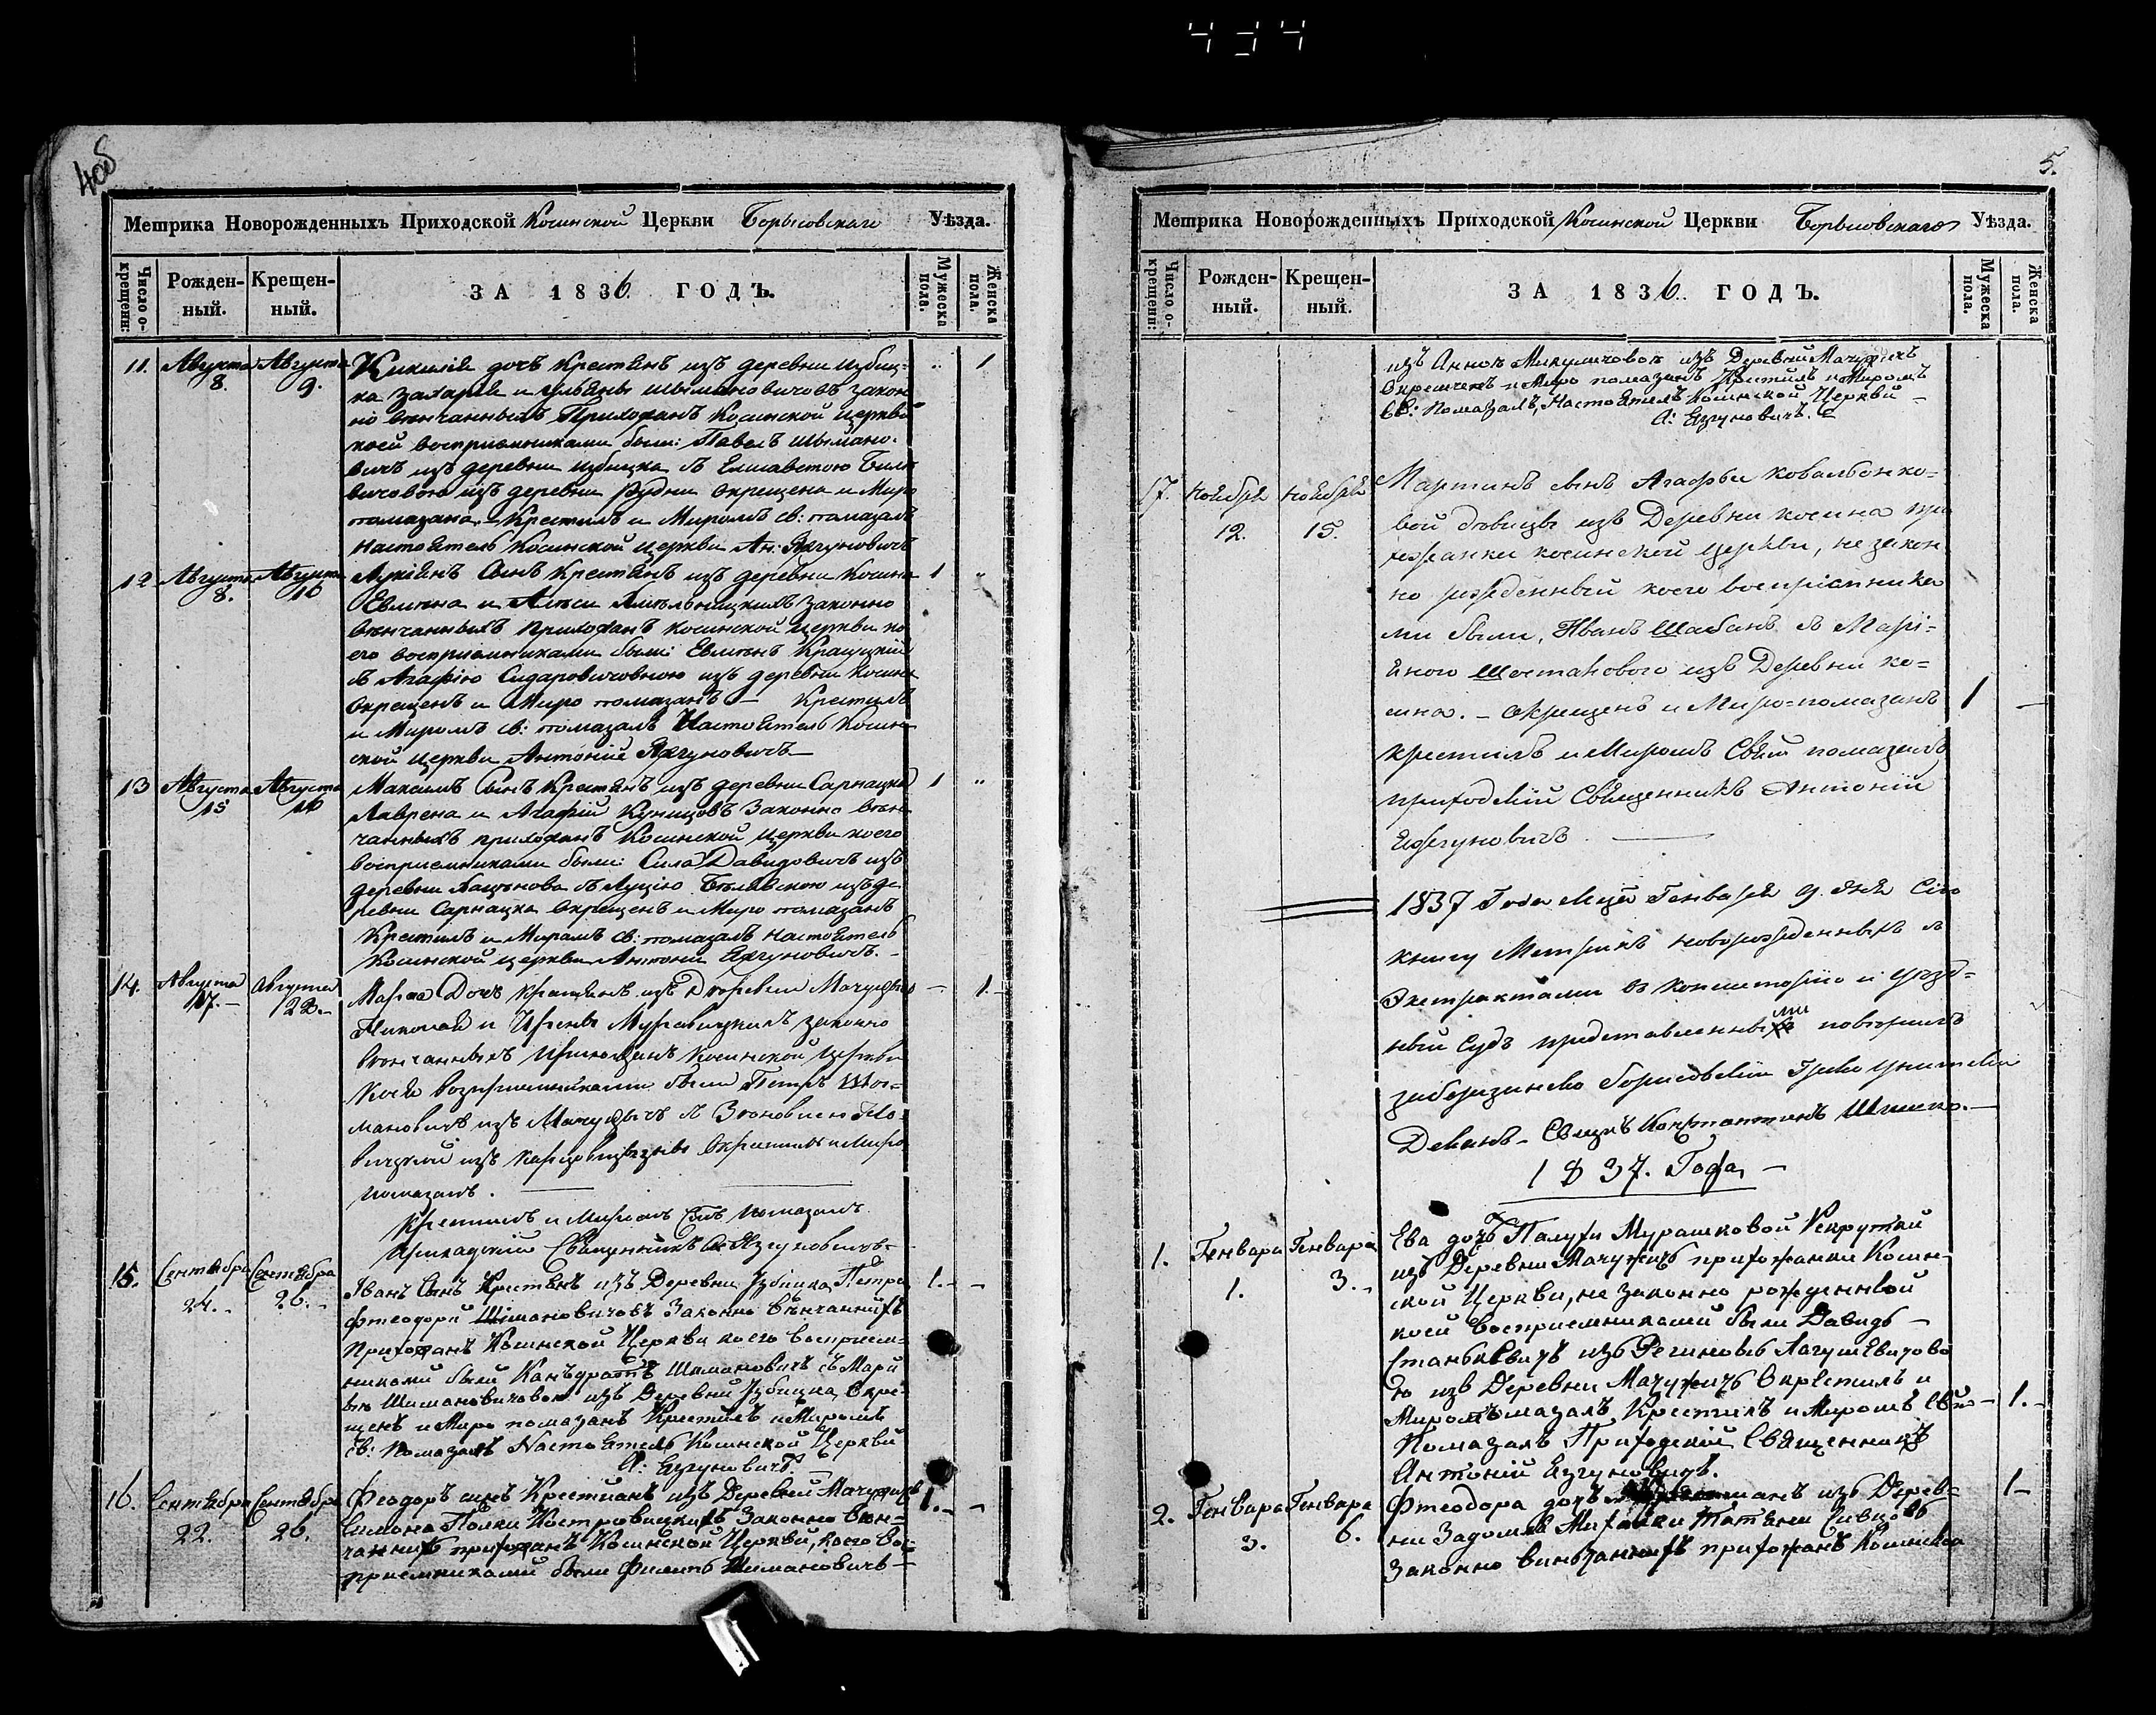 434
4об
Метрика Новорожденныхъ Приходской Косинской Церкви Борысовскаго Уѣзда.
Число о-крещенн: Рожден-ный. Крещен-ный. ЗА 1836. ГОДЪ. Мужеска пола. Женска пола.
11. Августа 8. Августа 9. Кикилія дочъ Крестянъ изъ деревни Избиц- „ 1
ка Захарія и Ульяны Шымановичовъ закон
но вѣнчанныхъ Прихожанъ Косинской церкви
коей восприемниками были: Павелъ Шымано-
вичъ изъ деревни Избицка съ Елисаветою
вичовою изъ деревни Рудни окрещена и Миро
помазана. – Крестилъ и Миромъ св: помазалъ
Настоятель Косинской церкви Ан: Язгуновичъ
12 Августа 8. Августа 10 Лукіянъ Сынъ Крестянъ изъ деревни Косина 1 „
законно
вѣнчанныхъ прихожанъ Косинской церкви ко
его восприемниками были: Кращукій
съ Агафіею Сидаровичовною изъ деревни Косина
окрещенъ и Миро помазанъ – Крестилъ
и Миромъ св: помазалъ Настоятель Косин
ской церкви Антоній Язгуновичъ –
13 Августа 15 Августа 16 Максимъ Сынъ Крестянъ изъ деревни Сарнацка 1 „
Лаврена и Агафіи Куницовъ Законно вѣн
чанныхъ прихожанъ Косинской церкви коего
восприемниками были: Сила Давидовичъ изъ
деревни съ Луціею изъ де
ревни Сарнацка окрещенъ и Миро помазанъ
Крестилъ и Миромъ св: помазалъ Настоятель
Косинской церкви Антони Язгуновичъ. –
14. Августа 17. – Августа 22. – Дочъ крестянъ изъ Деревни – 1. –
Николая и Ирены законно
вѣнчанныхъ прихожанъ Косинской Церкви
Коея возприемниками были Петръ Ши-
мановичъ изъ
изъ и Миро
помазанъ.
Крестилъ и Миромъ Свѣ помазалъ
Приходскій Священникъ Язгуновичъ –
15. Сентября 24. – Сентября 26. – Іванъ Сынъ Крестянъ изъ Деревни Избицка Петра 1. – –
Фтеодори Шімановичовъ Законно Вѣнчаннихъ
Прихожанъ Косинской Церкви коего восприем-
никами были Канъдратъ Шимановичъ съ Мари
ею Шимановичовою изъ Деревни Избицка, Окре-
щенъ и Миро помазанъ Крестилъ и Миромъ
св: Помазалъ Настоятель Косинской Церкви
А: Езгуновичъ –
16. Сентября 22. Сентября 26. Феодоръ сынъ Крестианъ изъ Деревни 1. – –
Симона Законно Вѣн-
чанних прихожанъ Косинской Церкви, коего Во-
приемниками были Филипъ Шимановичъ –
5.
Метрика Новорожденныхъ Приходской Косинской Церкви Борысовскаго Уѣзда.
Число о-крещенн: Рожден-ный. Крещен-ный. ЗА 1836. ГОДЪ. Мужеска пола. Женска пола.
изъ Деревни
Окрещенъ и Миро помазанъ Крестилъ и Миромъ
Св: Помазалъ, Настоятель Косинской Церкви –
А: Езгуновичъ.
17. Ноября 12. Ноября 15. Мартинъ сынъ Агафьи Ковальонко-
вой дѣвицы изъ Деревни Косина при
хожанки косинской церкви, не закон
но рожденный коего воспріемника
ми были, Иванъ Шабанъ съ Марі-
яною Шостаковою изъ Деревни ко-
сина. – окрещенъ и Миро=помазанъ 1 –
крестилъ и Миромъ Свѣт помазалъ
приходскій Священникъ Антоній
Езгуновичъ –
1837 Года Мцѣ Генваря 9. дня Сію
книгу Метрикъ новорожденныхъ съ
Экстрактами въ консисторію и уѣзд-
ный Судъ представленными повѣрилъ
заберезинско Борисовскій Греко унитскій
Деканъ – Свщнъ Константинъ –
1837. Года, –
1. Генвара 1. Генвара 3. – Ева дочъ Палуги Мурашковой Рекрутки
изъ Деревни прихожанки Косин-
ской Церкви, не законно рожденной
коей Восприемниками были Давидъ –
Станькевичъ изъ
ю изъ Деревни Окрестилъ и
Миромъ мазалъ Крестилъ и Миромъ – 1. –
Помазалъ Приходскій Священникъ
Антоній Езгуновичъ.
2. Генвара 3. Генвара 6. Фтеодора дочъ изъ Дерев- 1 –
ни
Законно прихожанъ Косинской